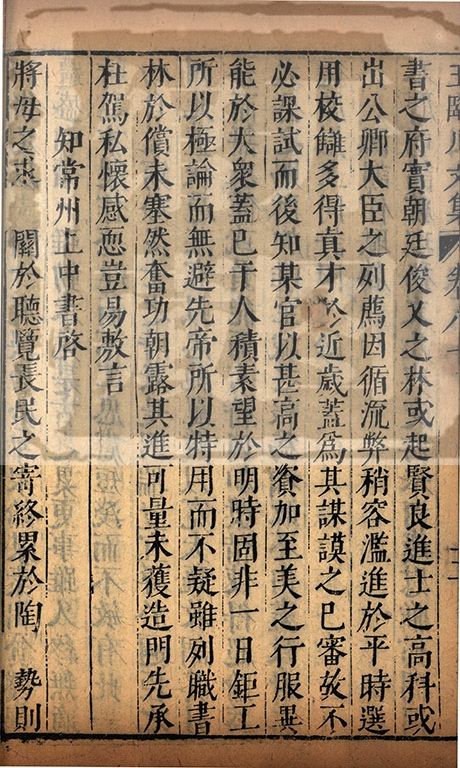 王臨川文集 卷八十
書之府實朝廷俊乂之林或起賢良進士之高科或
出公卿大臣之列薦因循流弊稍容濫進於平時選
用校讎多得真才於近歲蓋爲其謀謨之已審故不
必課試而後知某官以甚高之資加至美之行服異
能於大衆蓋已于人積素望於明時固非一日鉅工
所以極論而無避先帝所以特用而不疑雖列職書
林於償未塞然奮功朝露其進可量未獲造門先承
枉駕私懷感恧豈易敷言
知常州上中書啓
將母之求 關於聽覽長民之寄終累於陶 勢則